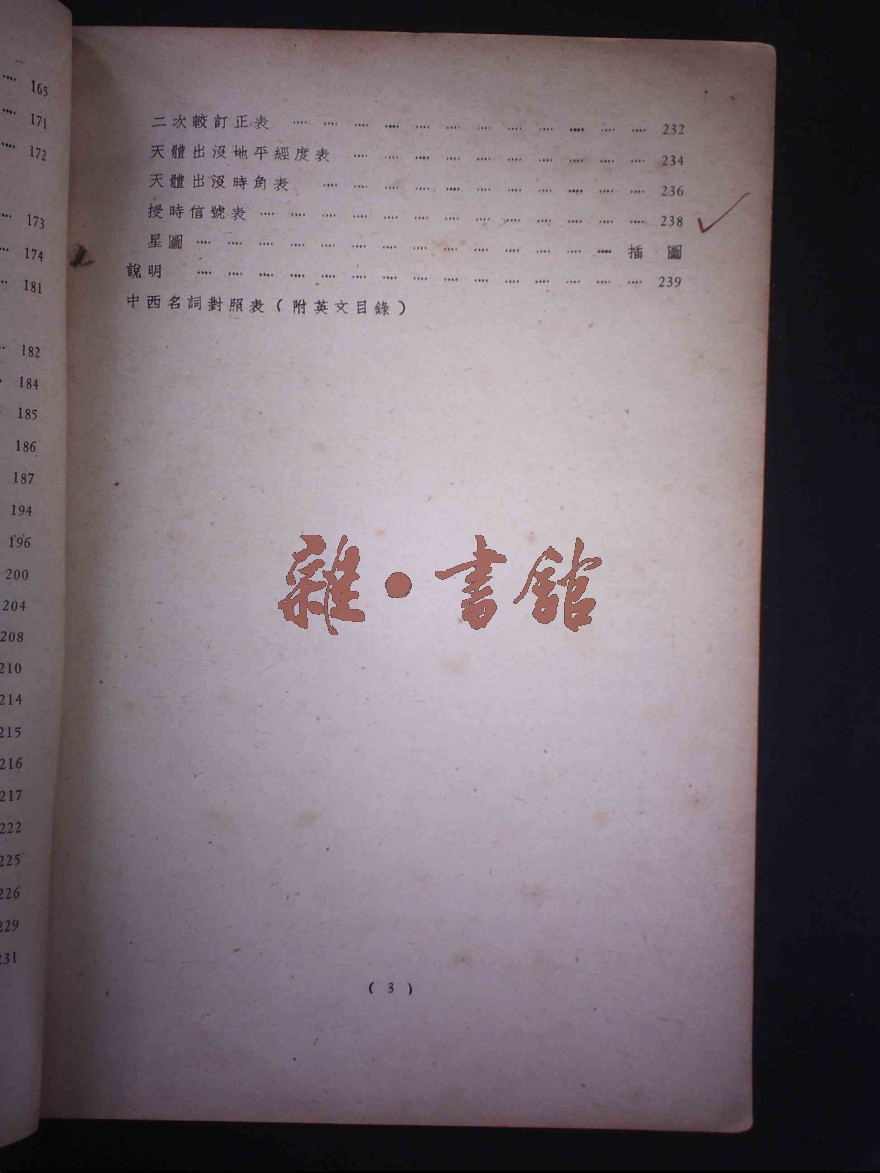 165
171
172
173
174
181
182
184
185
186
187
194
196
200
204
208
210
214
215
216
217
222
225
226
229
231
二次較訂正表 ···· ···· ···· ···· ···· ···· ···· ···· ···· ···· ···· ···· 232
天體出沒地平經度表 ···· ···· ···· ···· ···· ···· ···· ···· ···· ···· 234
天體出沒時角表 ···· ···· ···· ···· ···· ···· ···· ···· ···· ···· ···· 236
授時信號表 ···· ···· ···· ···· ···· ···· ···· ···· ···· ···· ···· ···· ···· 238
星圖 ···· ···· ···· ···· ···· ···· ···· ···· ···· ···· ···· ···· ···· ···· 插圖
說明 ···· ···· ···· ···· ···· ···· ···· ···· ···· ···· ···· ···· ···· ···· ···· 239
中西名詞對照表(附英文目錄)
雜·書館
(3)